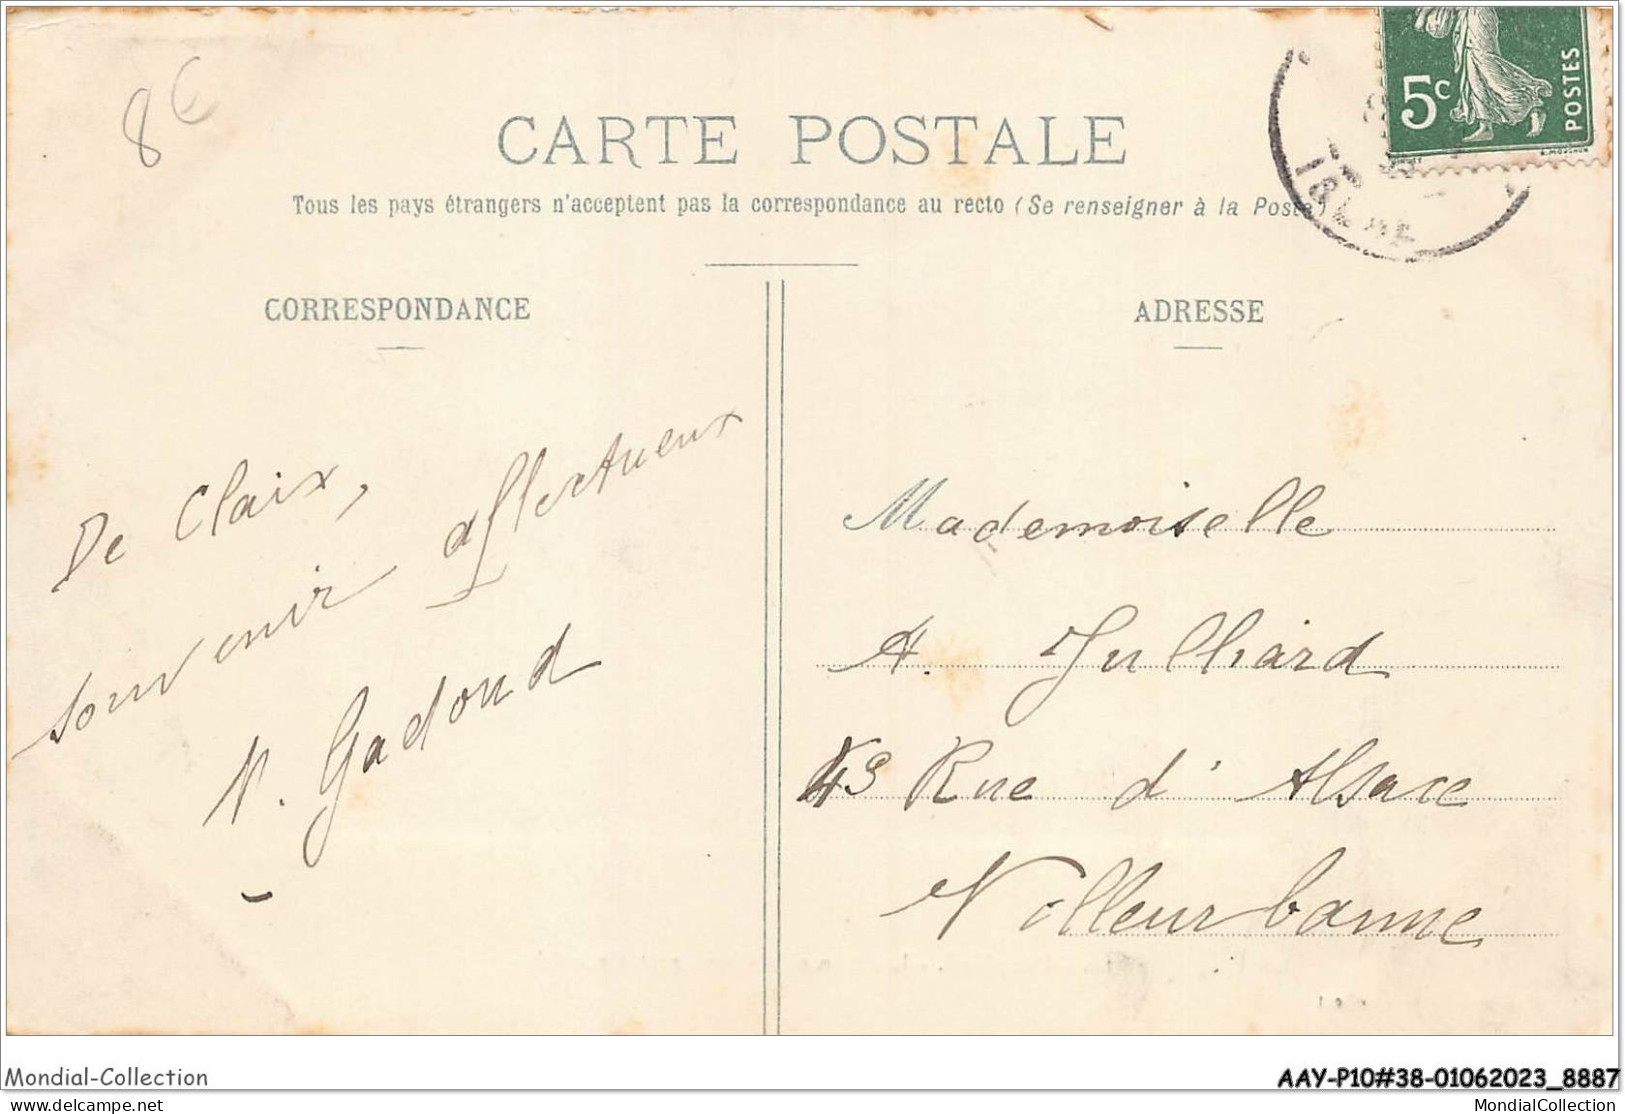 8€
5c
POSTES
CARTE POSTALE
Tous les pays étrangers n'acceptent pas la correspondance au recto (Se renseigner à la Poste)
CORRESPONDANCE
ADRESSE
De Claix,
souvenir affectueux
N. Gadoud
Mademoiselle
A. Julliard
43 Rue d'Alsace
Villeurbanne
Mondial-Collection
AAY-P10#38-01062023_8887
delcampe.net
MondialCollection